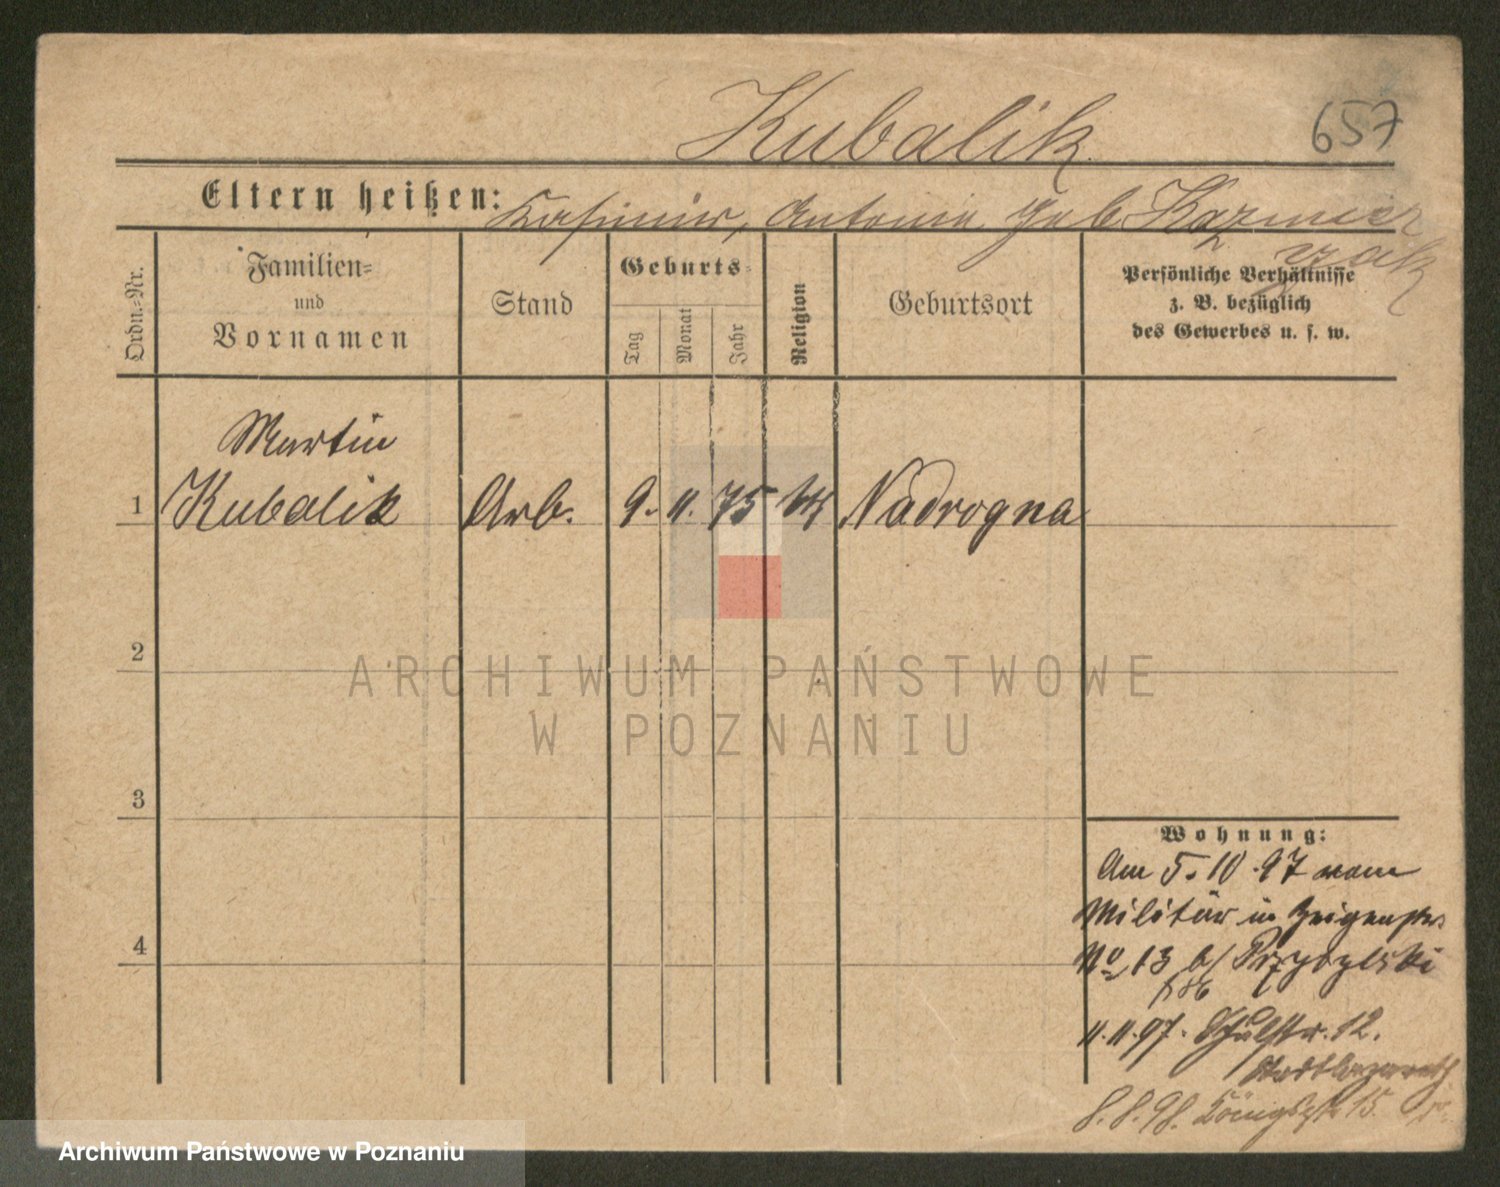 Kubalik.
657
Eltern heißen: Kasimir, Antonie geb. Kazmier
czak
Ordn.=Nr.
Familien=
und
Vornamen
Stand
Geburts=
Tag
Monat
Jahr
Religion
Geburtsort
Persönliche Verhältnisse
z. B. bezüglich
des Gewerbes u. s. w.
Martin
1 Kubalik Arb. 9. 11. 75 kth Nadrogna
2
ARCHIWUM PAŃSTWOWE
W POZNANIU
3
Wohnung:
Am 5. 10. 97 vom
Militär in
4
No 13 b/
11. 11. 97. Schulstr. 12.
Stadtlazareth
8. 8. 98. Königsstr 15.
Archiwum Państwowe w Poznaniu